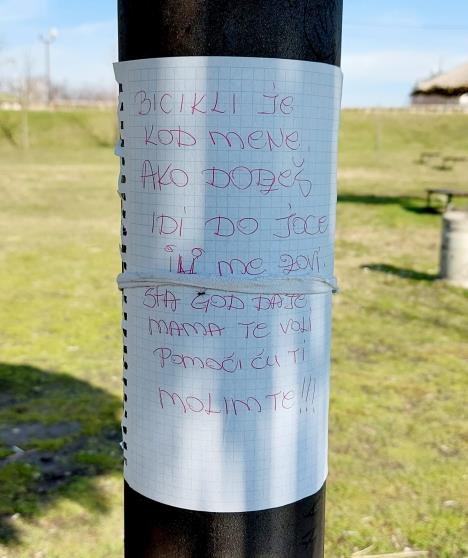 BICIKLI JE
KOD MENE.
AKO DOĐEŠ
IDI DO JOCE
ILI ME ZOVI.
ŠTA GOD DA JE
MAMA TE VOLI
POMOĆI ĆU TI
MOLIM TE!!!